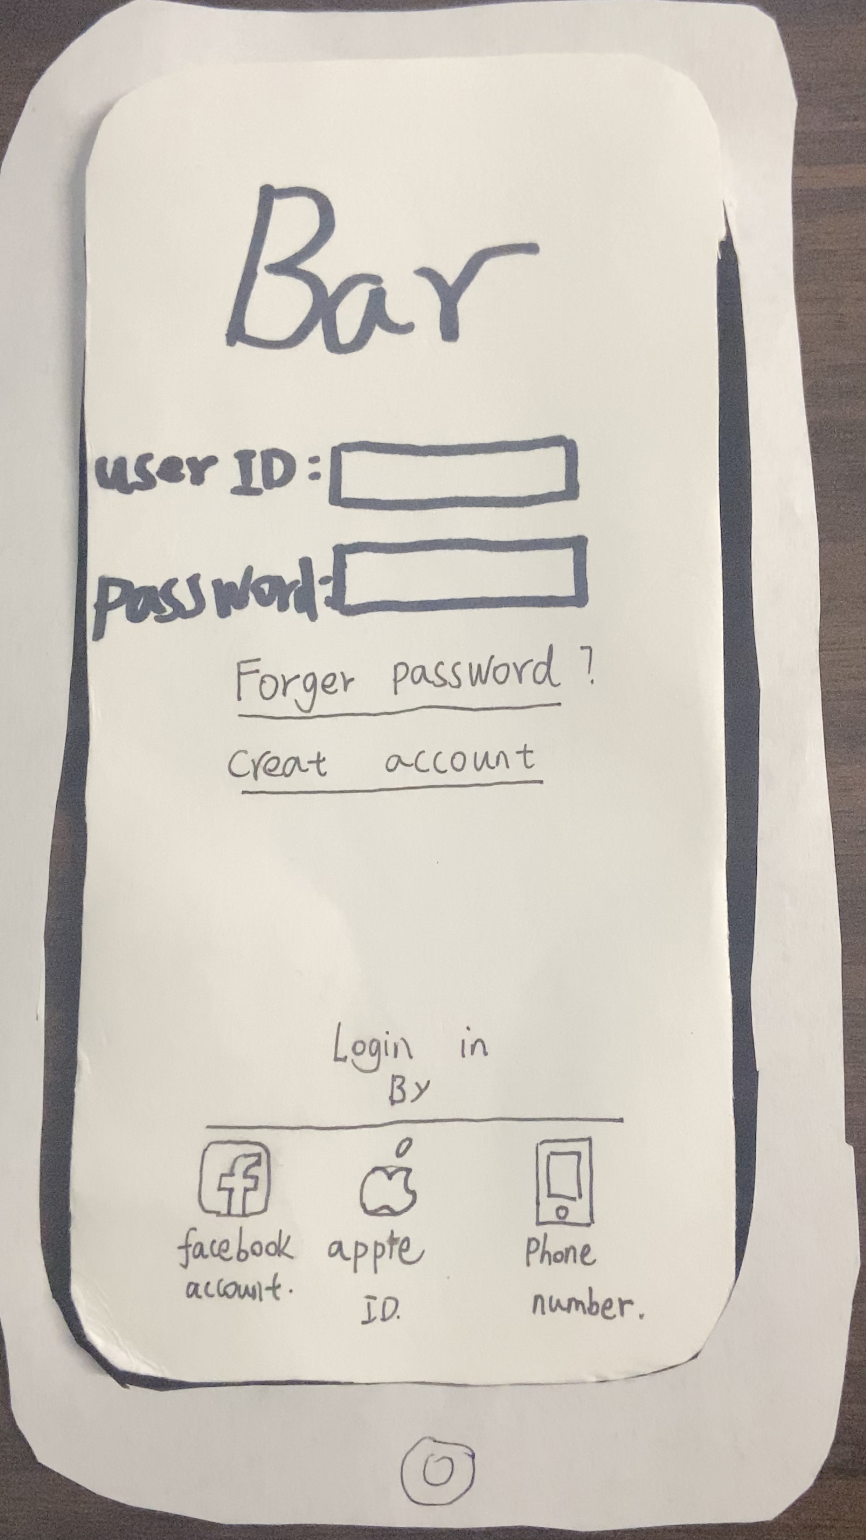 Bar
user ID:
password:
Forger password?
Creat account
Login in
By
facebook account.
apple ID.
Phone number.